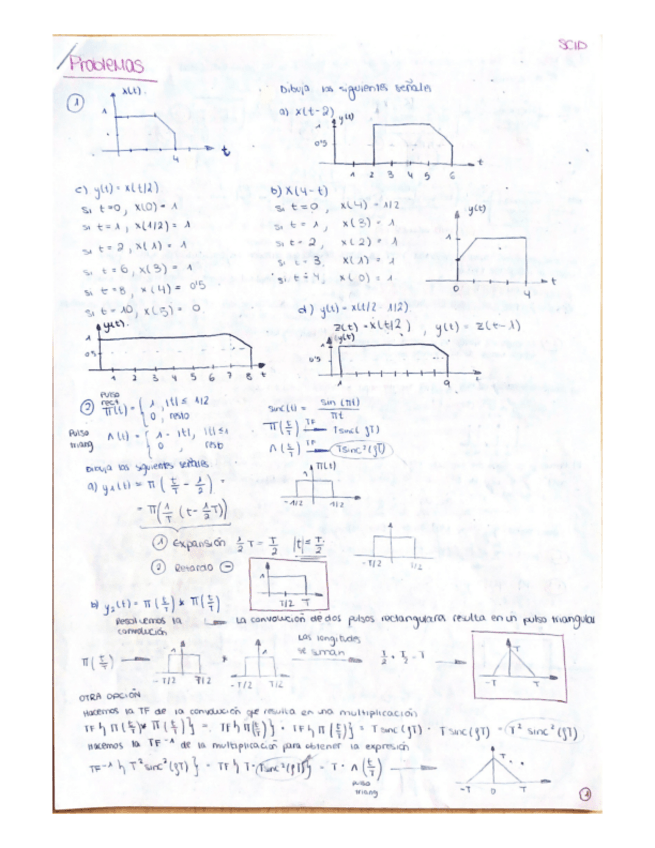 SCID
Problemas
① x(t). Dibuja las siguientes señales
a) x(t-2)
y(t)
1
0'5
1 2 3 4 5 6 t
1
4 t
c) y(t) = x(t/2) b) x(4-t)
si t=0, x(0) = 1 si t=0, x(4) = 1/2
si t=1, x(1/2) = 1 si t=1, x(3) = 1
si t=2, x(1) = 1 si t=2, x(2) = 1
si t=6, x(3) = 1 si t=3, x(1) = 1
si t=8, x(4) = 0'5 si t=4, x(0) = 1
si t=10, x(5) = 0
y(t)
1
0 4 t
d) y(t) = x(t/2 - 1/2)
z(t) = x(t/2), y(t) = z(t-1)
y(t).
1
0'5
1 2 3 4 5 6 7 8 t
y(t)
1
0'5
1 9 t
② Pulso rect Π(t) = { 1, |t| ≤ 1/2
0, resto
Pulso triang Λ(t) = { 1 - |t|, |t| ≤ 1
0, resto
sinc(t) = sin (πt) / πt
Π(t/T) TF→ Tsinc(fT)
Λ(t/T) TF→ Tsinc²(fT)
Dibuja las siguientes señales
a) y₁(t) = Π(t/T - 1/2) =
= Π(1/T (t - 1/2T))
1 Π(t)
-1/2 1/2
① Expansión 1/2 T = T/2 |t| ≤ T/2
-T/2 T/2
② Retardo ⊖
1
T/2 T
b) y₂(t) = Π(t/T) * Π(t/T)
Resolvemos la convolución → La convolución de dos pulsos rectangulares resulta en un pulso triangular
Π(T/T) → 1 * 1 Las longitudes se suman → T/2 + T/2 = T →
-T/2 T/2 -T/2 T/2 -T T
OTRA OPCIÓN
Hacemos la TF de la convolución qe resulta en una multiplicación
TF{Π(t/T) * Π(t/T)} = TF{Π(t/T)} · TF{Π(t/T)} = T sinc(fT) · T sinc(fT) = T² sinc²(fT)
Hacemos la TF⁻¹ de la multiplicación para obtener la expresión
TF⁻¹{T² sinc²(fT)} = TF{T · Tsinc²(fT)} = T · Λ(t/T) →
pulso triang
T
-T 0 T
①